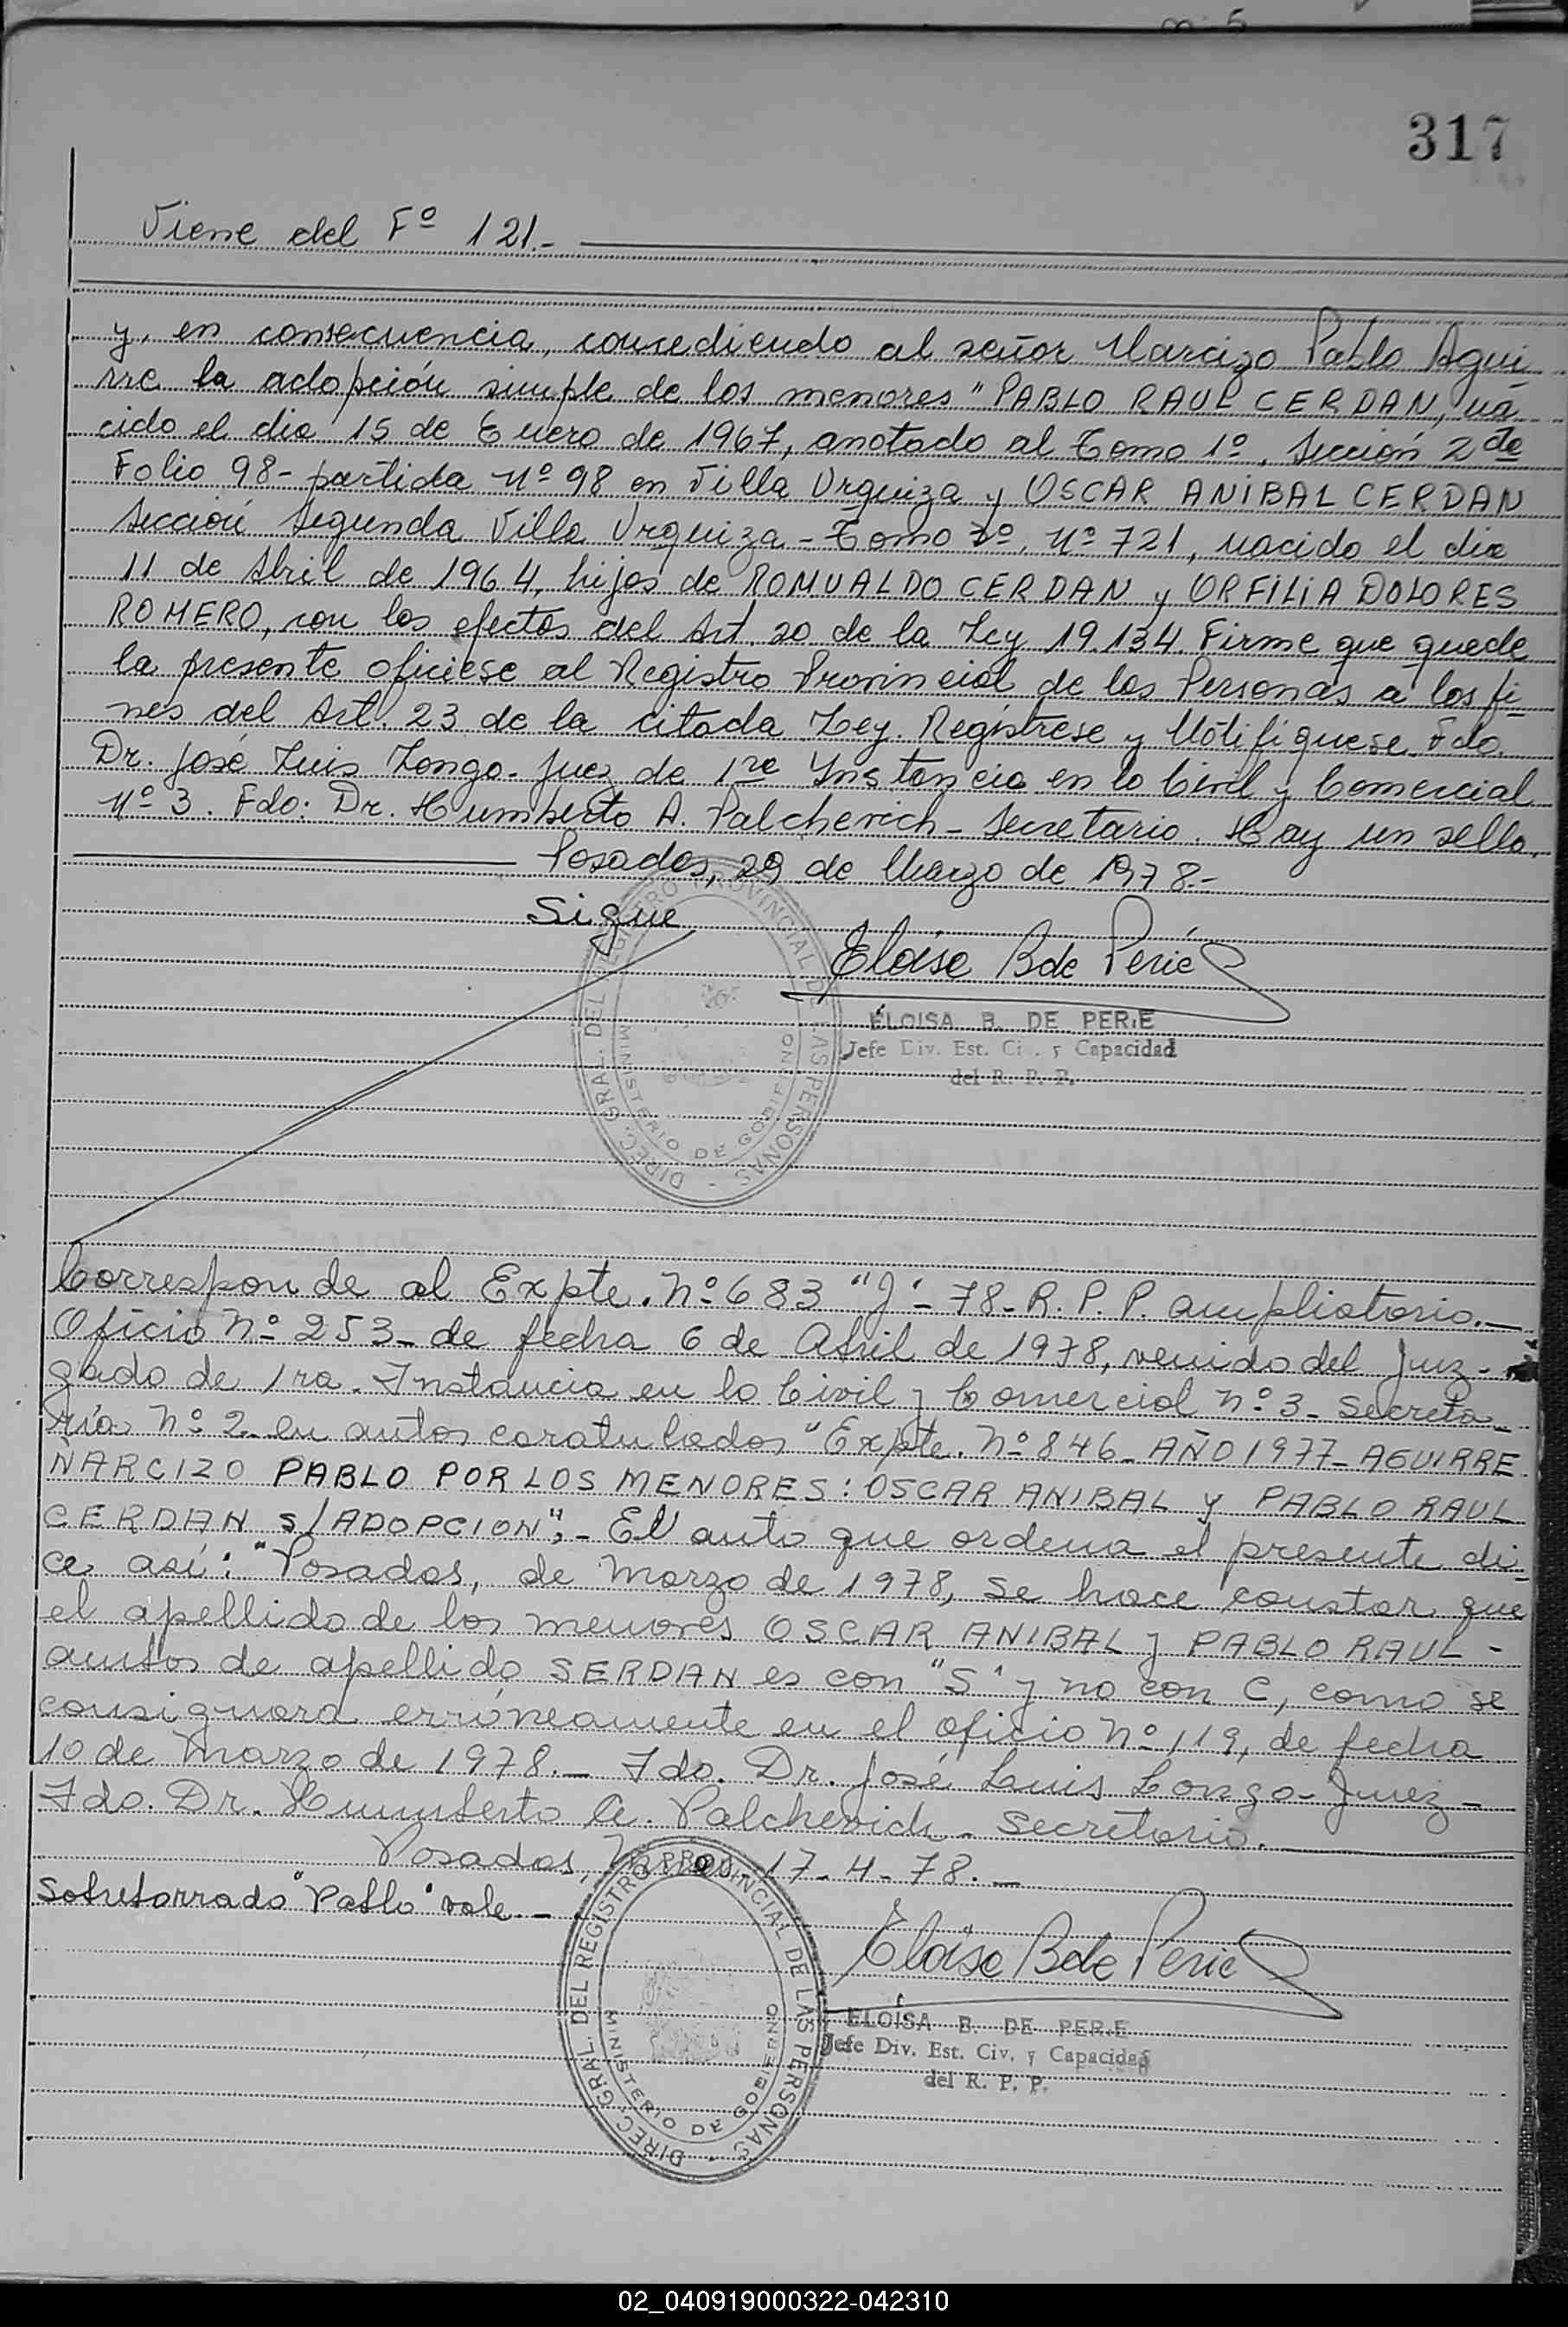 317
Viene del Fº 121.-
y, en consecuencia, concediendo al señor Narcizo Pablo Agui-
rre la adopción simple de los menores "PABLO RAUL CERDAN, na-
cido el dia 15 de Enero de 1967, anotado al Tomo 1º, Sección 2da
Folio 98- partida Nº 98 en Villa Urquiza y OSCAR ANIBAL CERDAN
Sección Segunda Villa Urquiza - Tomo Nº 721, nacido el dia
11 de Abril de 1964, hijos de ROMUALDO CERDAN y ORFILIA DOLORES
ROMERO, con los efectos del Art. 20 de la Ley 19.134. Firme que quede
la presente oficiese al Registro Provincial de las Personas a los fi-
nes del Art. 23 de la citada Ley. Regístrese y Nótifiquese. Fdo.
Dr. José Luis Longo- Juez de 1ra Instancia en lo Civil y Comercial
Nº 3. Fdo: Dr. Humberto A. Palcherich- Secretario. Hay un sello.
Posadas, 29 de Marzo de 1978.-
Sigue
Eloisa B de Perié
ELOISA B. DE PERIE
Jefe Div. Est. Ci . y Capacidad
del R. P. P.
DIREC. GRAL. DEL REGISTRO PROVINCIAL DE LAS PERSONAS -
MINISTERIO DE GOBIERNO
Corresponde al Expte. Nº 683 "J"- 78- R. P. P. ampliatorio.-
Oficio Nº 253- de fecha 6 de Abril de 1978, venido del Juz-
gado de 1ra. Instancia en lo Civil y Comercial Nº 3- Secreta-
ría Nº 2- en autos caratulados "Expte. Nº 846- AÑO 1977- AGUIRRE
NARCIZO PABLO POR LOS MENORES: OSCAR ANIBAL y PABLO RAUL
CERDAN s/ADOPCION",- El auto que ordena el presente di-
ce así: "Posadas, de Marzo de 1978, se hace constar que
el apellido de los menores OSCAR ANIBAL y PABLO RAUL -
ambos de apellido SERDAN es con "S" y no con C, como se
consignara erróneamente en el oficio Nº 119, de fecha
10 de Marzo de 1978.- Fdo. Dr. José Luis Longo- Juez-
Fdo. Dr. Humberto A. Palcherich- Secretario.
Posadas, 17-4-78.-
Sobreborrado "Pablo" vale.-
Eloisa B de Perié
ELOISA B. DE PERIE
Jefe Div. Est. Civ. y Capacidad
del R. P. P.
DIREC. GRAL. DEL REGISTRO PROVINCIAL DE LAS PERSONAS -
MINISTERIO DE GOBIERNO
02_040919000322-042310